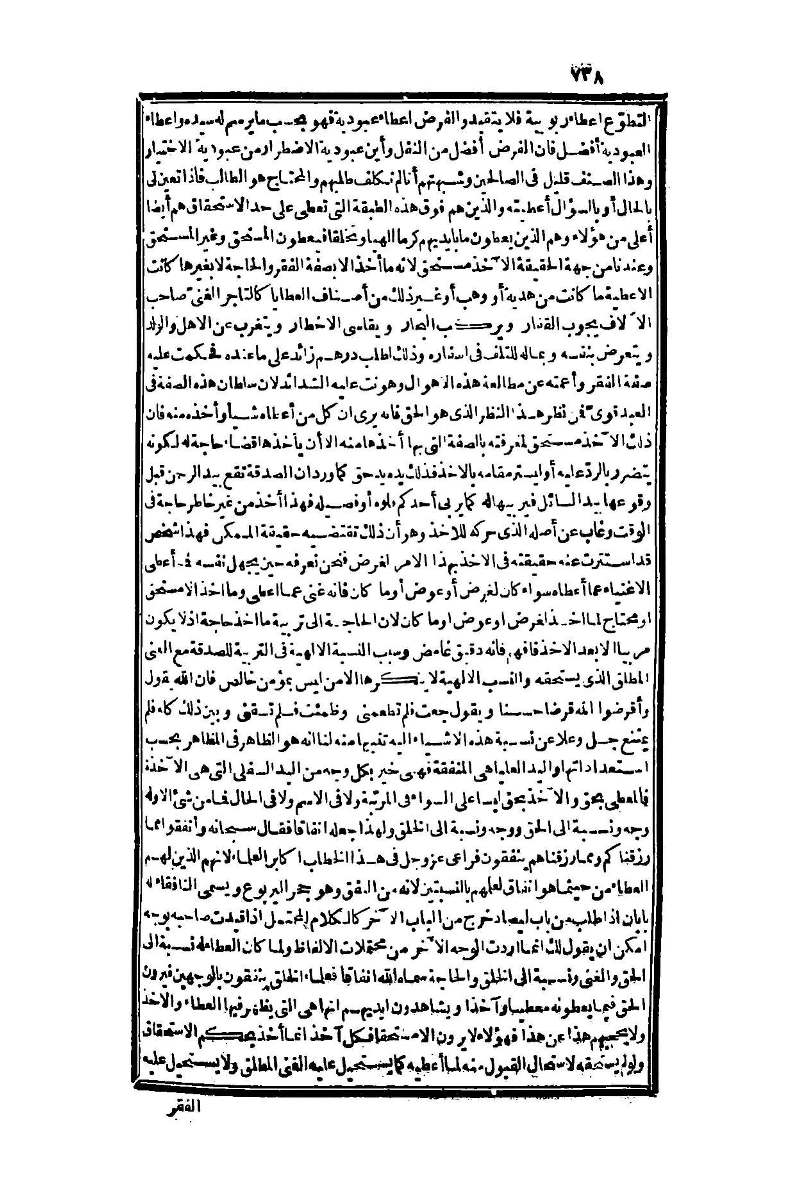 ٧٣٨
التطوّع اعطاء ربوبية فلا يتقيد والفرض اعطاء عبودية فهو بحسب ما يرسم له سيده واعطاء
العبودية أفضل فان الفرض أفضل من النفل وأين عبودية الاضطرار من عبودية الاختيار
وهذا الصنف قليل فى الصالحين وشبهتهم أنا لم نكلف طلبهم والمحتاج هو الطالب فاذا تعين لى
بالحال أو بالسؤال أعطيته والذين هم فوق هذه الطبقة التى تعطى على حد الاستحقاق هم أيضا
أعلى من هؤلاء وهم الذين يعطون ما بأيديهم كرما الهيا وتخلقا فيعطون المستحق وغير المستحق
وعندنا من جهة الحقيقة الآخذ مستحق لانه ما أخذ الا بصفة الفقر والحاجة لا بغيرها كانت
الاعطية ما كانت من هدية أو وهب أو غير ذلك من أصناف العطايا كالتاجر الغنىّ صاحب
الآلاف يجوب القفار ويركب البحار ويقاسى الاخطار ويتغرب عن الاهل والولد
ويتعرض بنفسه وبماله للتلف فى اسفاره وذلك لطلب درهم زائد على ما عنده فحكمت عليه
صفة الفقر وأعمته عن مطالعة هذه الاهوال وهونت عليه الشدائد لان سلطان هذه الصفة فى
العبد قوىّ فن نظر هذا النظر الذى هو الحق فانه يرى ان كل من أعطاه شيأ وأخذه منه فان
ذلك الآخذ مستحق لمعرفته بالصفة التى بها أخذها منه الا أن يأخذها قضاء حاجة له لكونه
يتضرر بالردّ عليه أو ليستر مقامه بالاخذ فذلك يده يد حق كما ورد ان الصدقة تقع بيد الرحمن قبل
وقوعها بيد السائل فيربيها له كما يربى أحدكم فلوه أو فصيله فهذا أخذ من غير خاطر حاجة فى
الوقت وغاب عن أصله الذى حركه للاخذ وهو أن ذلك تقتضيه حقيقة الممكن فهذا شخص
قد استترت عنه حقيقته فى الاخذ بهذا الامر لغرض فنحن نعرفه حين يجهل نفسه فما أعطى
الاغنياء مما أعطاه سواء كان لغرض أو عوض أو ما كان فانه غنى عما اعطى وما اخذ الا مستحق
او محتاج لما اخذ لغرض او عوض او ما كان لان الحاجة الى تربية ما اخذ حاجة اذ لا يكون
مربيا الا بعد الاخذ فافهم فانه دقيق غامض وسبب النسبة الالهية فى التربية للصدقة مع الغنى
المطلق الذى يستحقه والنسب الالهية لا ينكرها الا من ليس بمؤمن خالص فان الله يقول
وأقرضوا الله قرضا حسنا ويقول جعت فلم تطعمنى وظمئت فلم تسقنى وبين ذلك كله فلم
يمتنع جل وعلا عن نسبة هذه الاشياء اليه تنبيها منه لنا انه هو الظاهر فى المظاهر بحسب
استعداداتها واليد العليا هى المنفقة فهى خير بكل وجه من اليد السفلى التى هى الآخذة
فالمعطى بحق والآخذ بحق ليسا على السواء فى المرتبة ولا فى الاسم ولا فى الحال فما من شئ الا وله
وجه ونسبة الى الحق ووجه ونسبة الى الخلق ولهذا جعله انفاقا فقال سبحانه وأنفقوا مما
رزقناكم ومما رزقناهم ينفقون فراعى عز وجل فى هذا الخطاب اكابر العلماء لانهم الذين لهم
العطاء من حيث ما هو انفاق لعلمهم بالنسبتين لانه من النفق وهو جحر اليربوع ويسمى النافقاء له
بابان اذا طلب من باب ليصاد خرج من الباب الآخر كالكلام المحتمل اذا قيدت صاحبه بوجه
امكن ان يقول لك انما اردت الوجه الآخر من محتملات الالفاظ ولما كان العطاء له نسبة الى
الحق والغنى ونسبة الى الخلق والحاجة سماه الله انفاقا فعلماء الخلق ينفقون بالوجهين فيرون
الحق فيما يعطونه معطيا وآخذا ويشاهدون ايديهم انها هى التى يظهر فيها العطاء والاخذ
ولا يحجبهم هذا عن هذا فهؤلاء لا يرون الا مستحقا فكل آخذ انما أخذ بحكم الاستحقاق
ولو لم يستحقه لاستحال القبول منه لما أعطيه كما يستحيل عليه الغنى المطلق ولا يستحيل عليه
الفقر